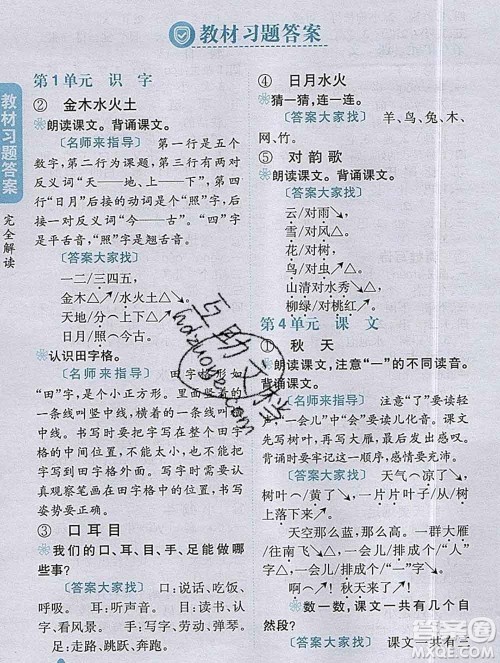 教材习题答案
教材习题答案
完全解读
第1单元 识 字
② 金木水火土
❋朗读课文。背诵课文。
〔名师来指导〕 第一行是五个
数字，第二行为课题，第三行有两对
反义词“天——地、上——下”。第四
行“日月”后接的动词是“照”字，后
接一对反义词“今——古”。“四”字是
平舌音，“照”字是翘舌音。
〔答案大家找〕
一二/三四五，
金木△↗/水火土△↗。
天地/分上下△↘，
日月/照今古△↘。
❋认识田字格。
〔名师来指导〕 田字格形如
“田”字，是个小正方形。里面竖着的
一条线叫竖中线，横着的一条线叫
横中线。书写时要摆布字在田字格
里的位置。写字时，要写在田字格中
间，不能太大，也不能太小，要注意
美观大方。书写前要养成认真观察
字形的好习惯，写完后再对照书本
认真观察笔画在田字格中的位置，
看是否写得完美。
③ 口耳目
❋我们的口、耳、目、手、足能做哪
些事？
〔答案大家找〕 口：说话、吃饭、
呼吸。 耳：听声音。 目：读书、看
风景。 手：写字、劳动、弹琴。
足：走路、跳跃、奔跑。
④ 日月水火
❋猜一猜，连一连。
〔答案大家找〕 羊、鸟、兔、木、
网、竹。
⑤ 对韵歌
❋朗读课文。背诵课文。
〔答案大家找〕
云/对雨↘，
雪/对风△。
花/对树↘，
鸟/对虫△↗。
山清/对水秀↘，
柳绿/对桃红↗。
第4单元 课 文
① 秋 天
❋朗读课文，注意“一”的不同读音。
背诵课文。
〔名师来指导〕 注意“了”要读轻
声，“一会儿”要读出儿化音。课文
先写树叶，再写大雁，最后发出感叹。
背诵时要牢记这一顺序，感情要充沛。
〔答案大家找〕 天气/凉了↘，
树叶/黄了↘，一片片叶子/从
树上/落下来↘。
天空那么蓝，那么高。一群大雁/
往南飞△↗，一会儿/排成个“人”
字△↗，一会儿/排成个“一”字△↘。
啊！秋天来了！
❋数一数，课文一共有几个自
然段？
〔答案大家找〕 课文一共有三
互助文作学
hdzuoye.com
答案圈
MXQE.COM